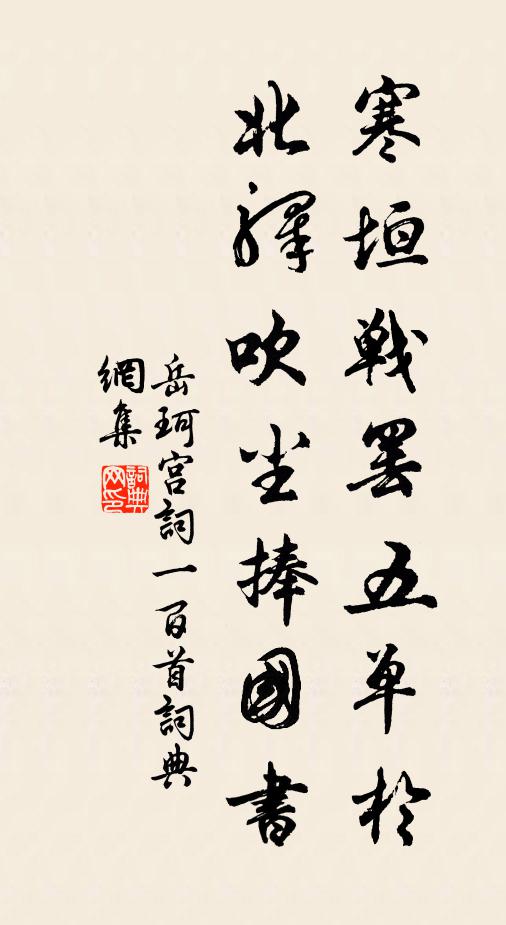 寒垣戰罷五单於
北驛吹尘捧國書
岳珂宫詞一百首詞典
網集
詞典
网印